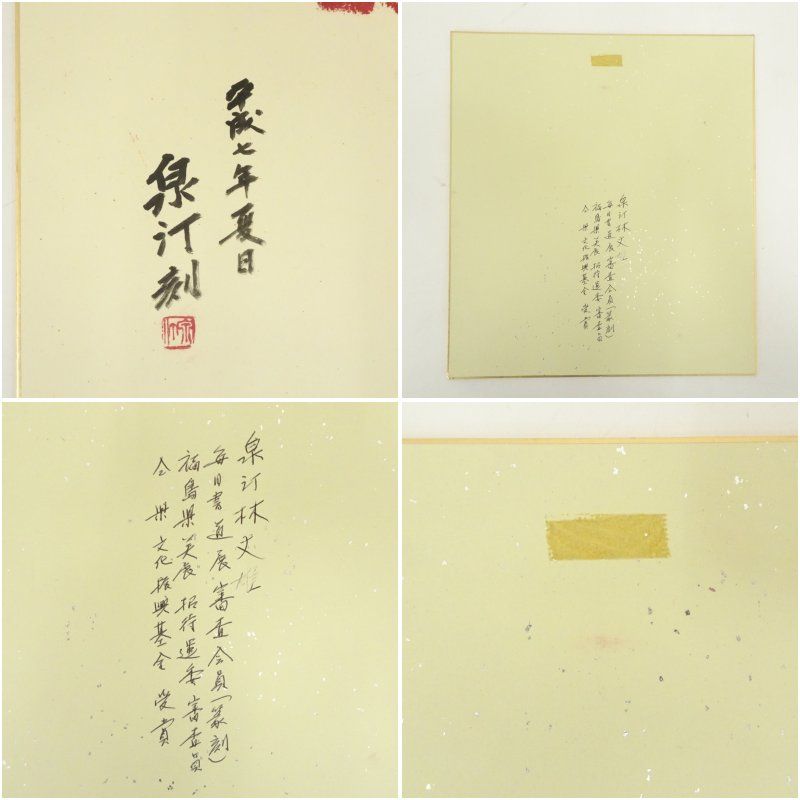 平成七年夏日
泉汀刻
泉汀林文雄
毎日書道展審査会員(篆刻)
福島県美展招待運委審査員
仝県文化振興基金受賞
泉汀林文雄
毎日書道展審査会員(篆刻)
福島県美展招待運委審査員
仝県文化振興基金受賞